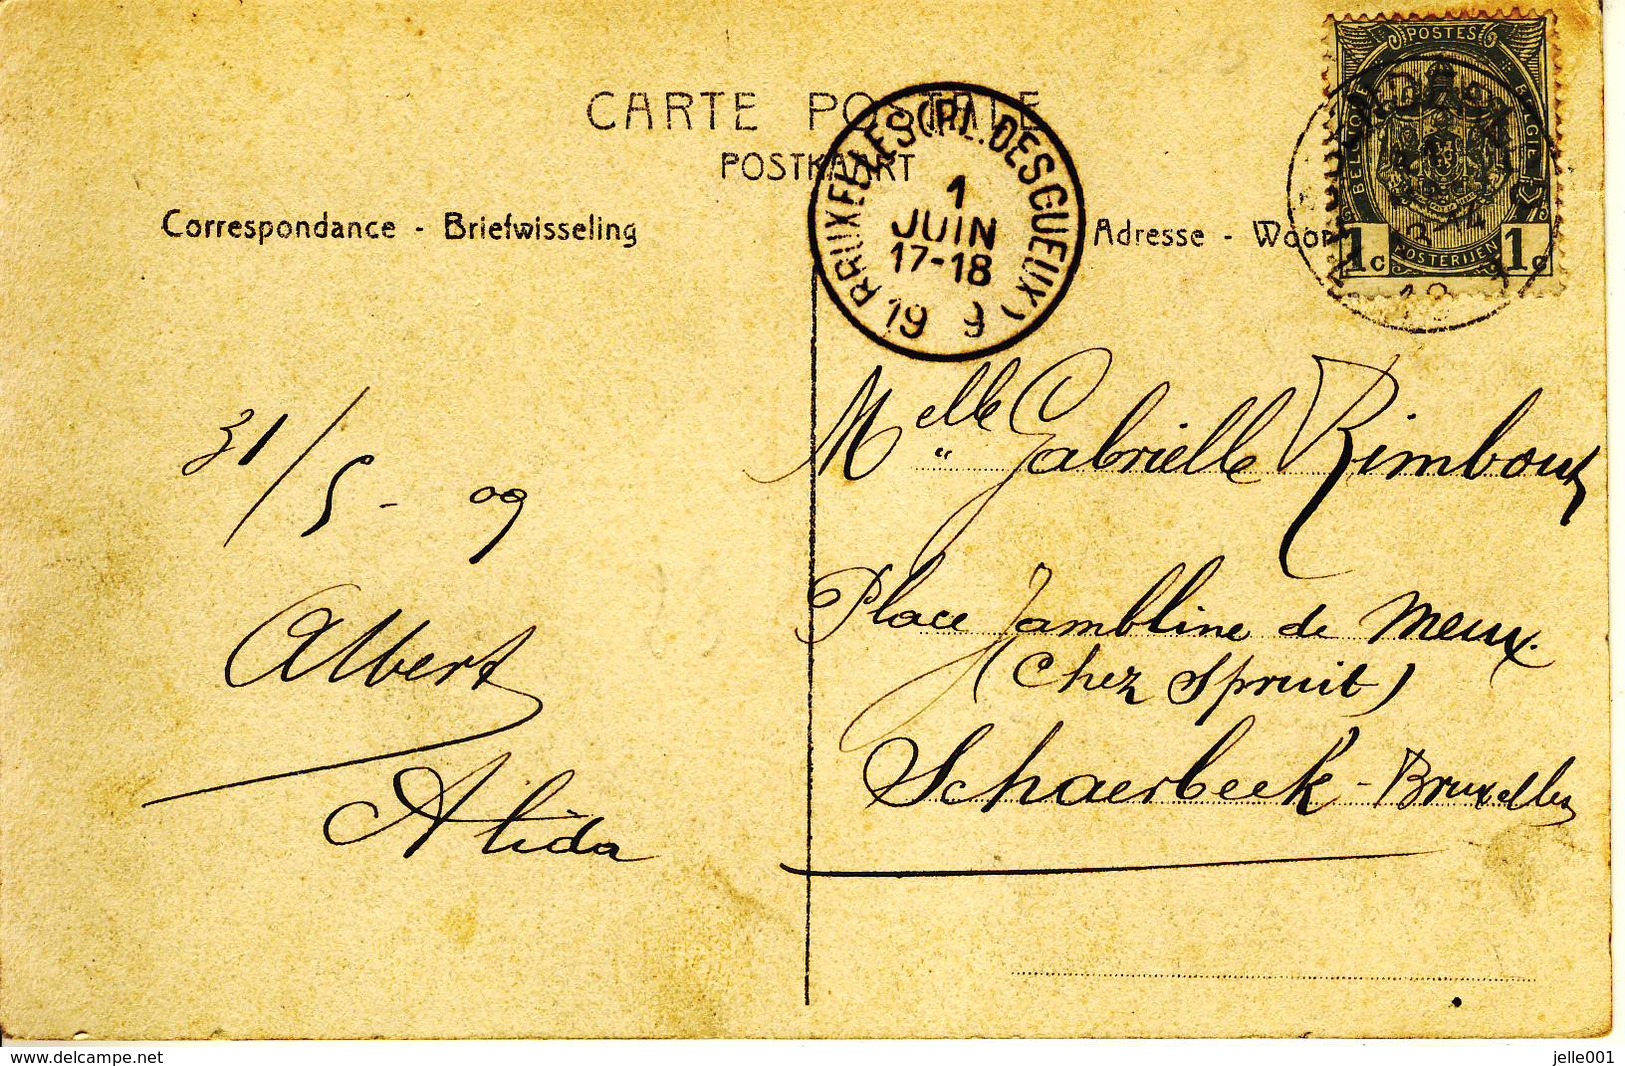 CARTE POSTALE
POSTKAART
Correspondance - Briefwisseling
Adresse - Woon
BRUXELLES (PL. DES GUEUX)
1
JUIN
17-18
19 9
POSTES
BELGIQUE
BELGIE
POSTERIJEN
1c 1c
31/5 - 09
Albert
Alida
Melle Gabrielle Rimbout
Place Jambline de Meux.
(Chez Spruit)
Schaerbeek - Bruxelles
www.delcampe.net
jelle001